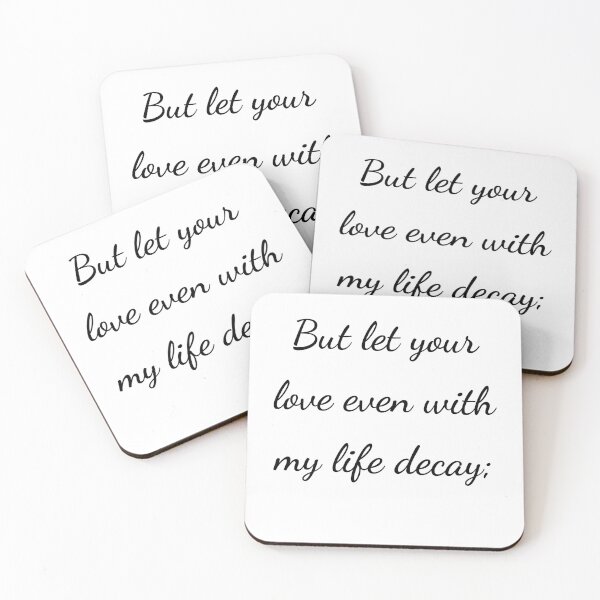 But let your
love even with
But let your
love even with
my life decay;
But let your
love even with
my life
But let your
love even with
my life decay;